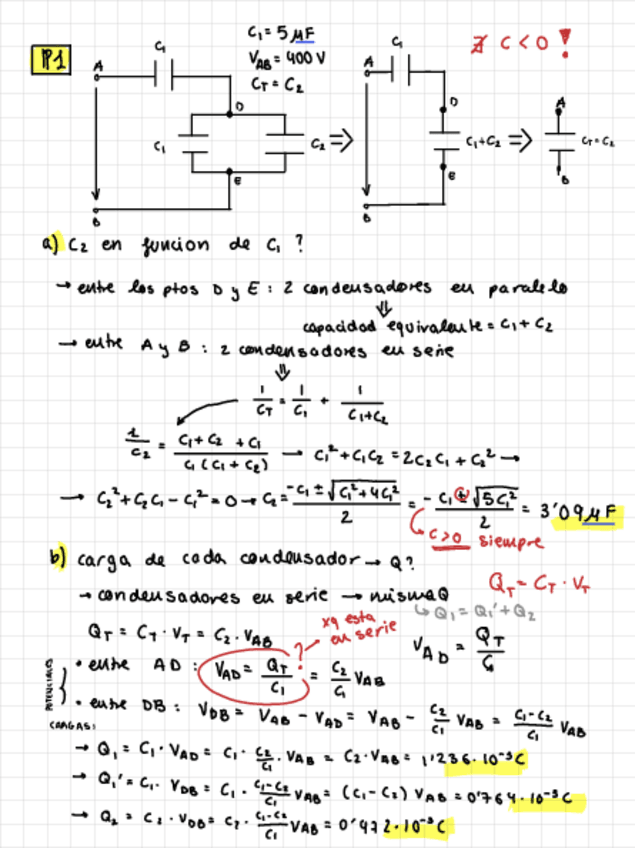 P1
C₁ = 5 μF
V_AB = 400 V
C_T = C₂
∄ C < 0 !
A
C₁
D
C₁
C₂ ⇒
E
B
A
C₁
D
C₁+C₂ ⇒
E
B
A
C_T = C₂
B
a) C₂ en funcion de C₁ ?
→ entre los ptos D y E : 2 condensadores en paralelo
⇓
capacidad equivalente = C₁ + C₂
→ entre A y B : 2 condensadores en serie
⇓
1/C_T = 1/C₁ + 1/(C₁+C₂)
1/C₂ = (C₁+C₂+C₁)/(C₁(C₁+C₂)) → C₁² + C₁C₂ = 2C₂C₁ + C₂² →
→ C₂² + C₂C₁ - C₁² = 0 → C₂ = (-C₁ ± √(C₁²+4C₁²))/2 = (-C₁ ± √(5C₁²))/2 = 3'09 μF
C>0 siempre
b) carga de cada condensador → Q?
→ condensadores en serie → misma Q
Q_T = C_T · V_T
↳ Q₁ = Q₁' + Q₂
Q_T = C_T · V_T = C₂ · V_AB
? → xq esta en serie
V_AD = Q_T/C₁
POTENCIALES
• entre AD : V_AD = Q_T/C₁ = C₂/C₁ V_AB
• entre DB : V_DB = V_AB - V_AD = V_AB - C₂/C₁ V_AB = (C₁-C₂)/C₁ V_AB
CARGAS:
→ Q₁ = C₁ · V_AD = C₁ · C₂/C₁ · V_AB = C₂ · V_AB = 1'236 · 10⁻³ C
→ Q₁' = C₁ · V_DB = C₁ · (C₁-C₂)/C₁ V_AB = (C₁-C₂) V_AB = 0'764 · 10⁻³ C
→ Q₂ = C₂ · V_DB = C₂ · (C₁-C₂)/C₁ V_AB = 0'472 · 10⁻³ C